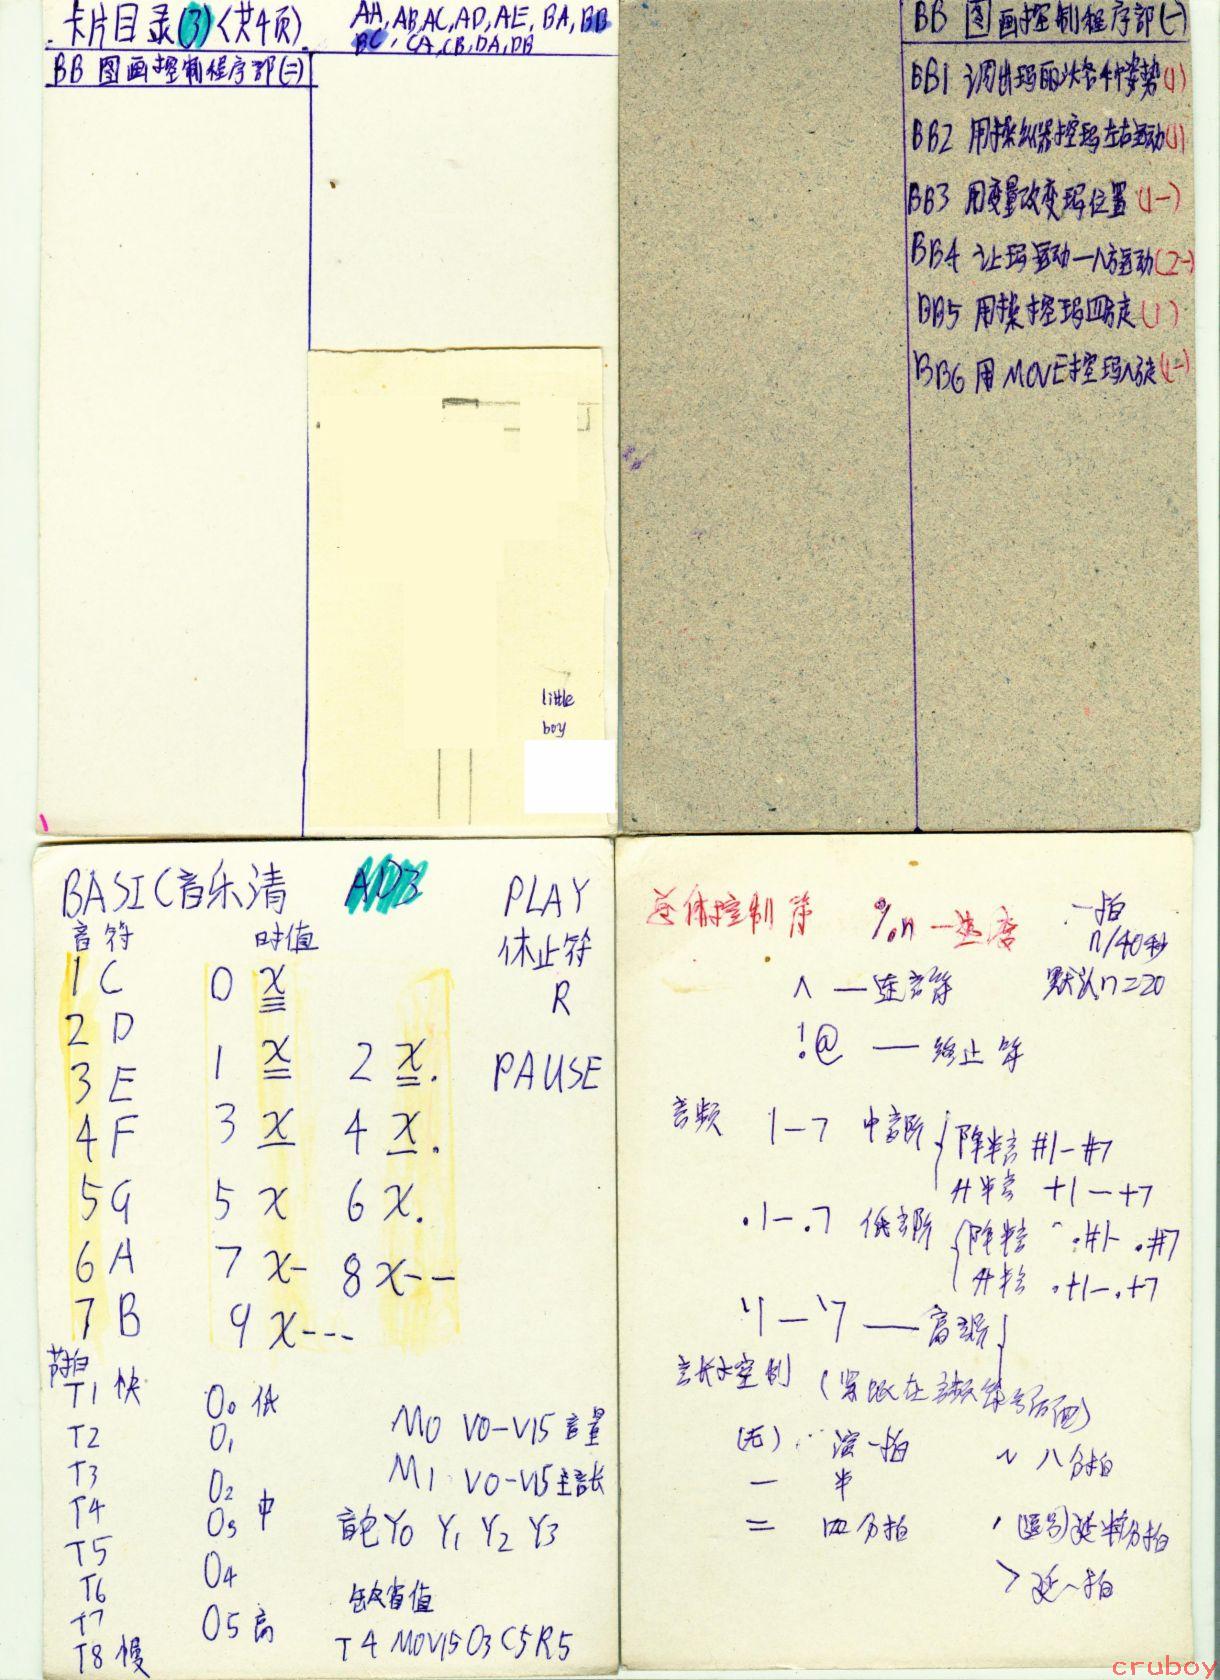 卡片目录(3)<共4页)
AA,AB,AC,AD,AE,BA,BB
BC,CA,CB,DA,DB
BB 图画控制程序部(二)
little
boy
BB 图画控制程序部(一)
BB1 调出玛丽沃各4个姿势(1)
BB2 用操纵器控玛左右运动(1)
BB3 用变量改变玛位置(1一)
BB4 让玛运动一八方运动(2一)
BB5 用操控玛四方走(1)
BB6 用MOVE控玛八方走
BASIC音乐清
ADB
PLAY
音符 时值 休止符
1 C 0 x R
2 D
3 E 1 x 2 x. PAUSE
4 F 3 x 4 x.
5 G 5 x 6 x.
6 A 7 x- 8 x--
7 B 9 x---
节拍
T1 快 O0 低
T2 O1 M0 V0-V15 音量
T3 O2 M1 V0-V15 音长
T4 O3 中 音色 Y0 Y1 Y2 Y3
T5 O4
T6 缺省值
T7 O5 高
T8 慢 T4 M0V15 O3 C5 R5
总体控制符 %n一速度 一拍
n/40秒
^ — 连音符 默认n=20
!@ — 终止符
音频 1-7 中音阶 降半音 #1-#7
升半音 +1-+7
.1-.7 低音阶 降半音 .#1-.#7
升半音 .+1-.+7
'1-'7 — 高音阶
音长控制 (紧跟在音频符号后面)
(无) 演一拍 ~ 八分拍
一 半
= 四分拍 , (逗号)延半分拍
> 延一拍
cruboy